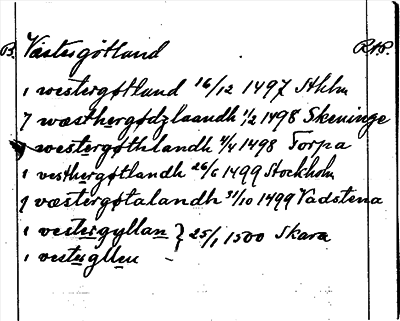 B. Västergötland RAP.
1 westergøtland 16/12 1497 Sthlm
7 wæsthergødzlaandh 1/2 1498 Skeninge
westergøthlandh 4/4 1498 Torpa
1 vesthergøtlandh 26/6 1499 Stockholm
1 væstergøtalandh 31/10 1499 Vadstena
1 vestergyllan } 25/1 1500 Skara
1 vestugllen